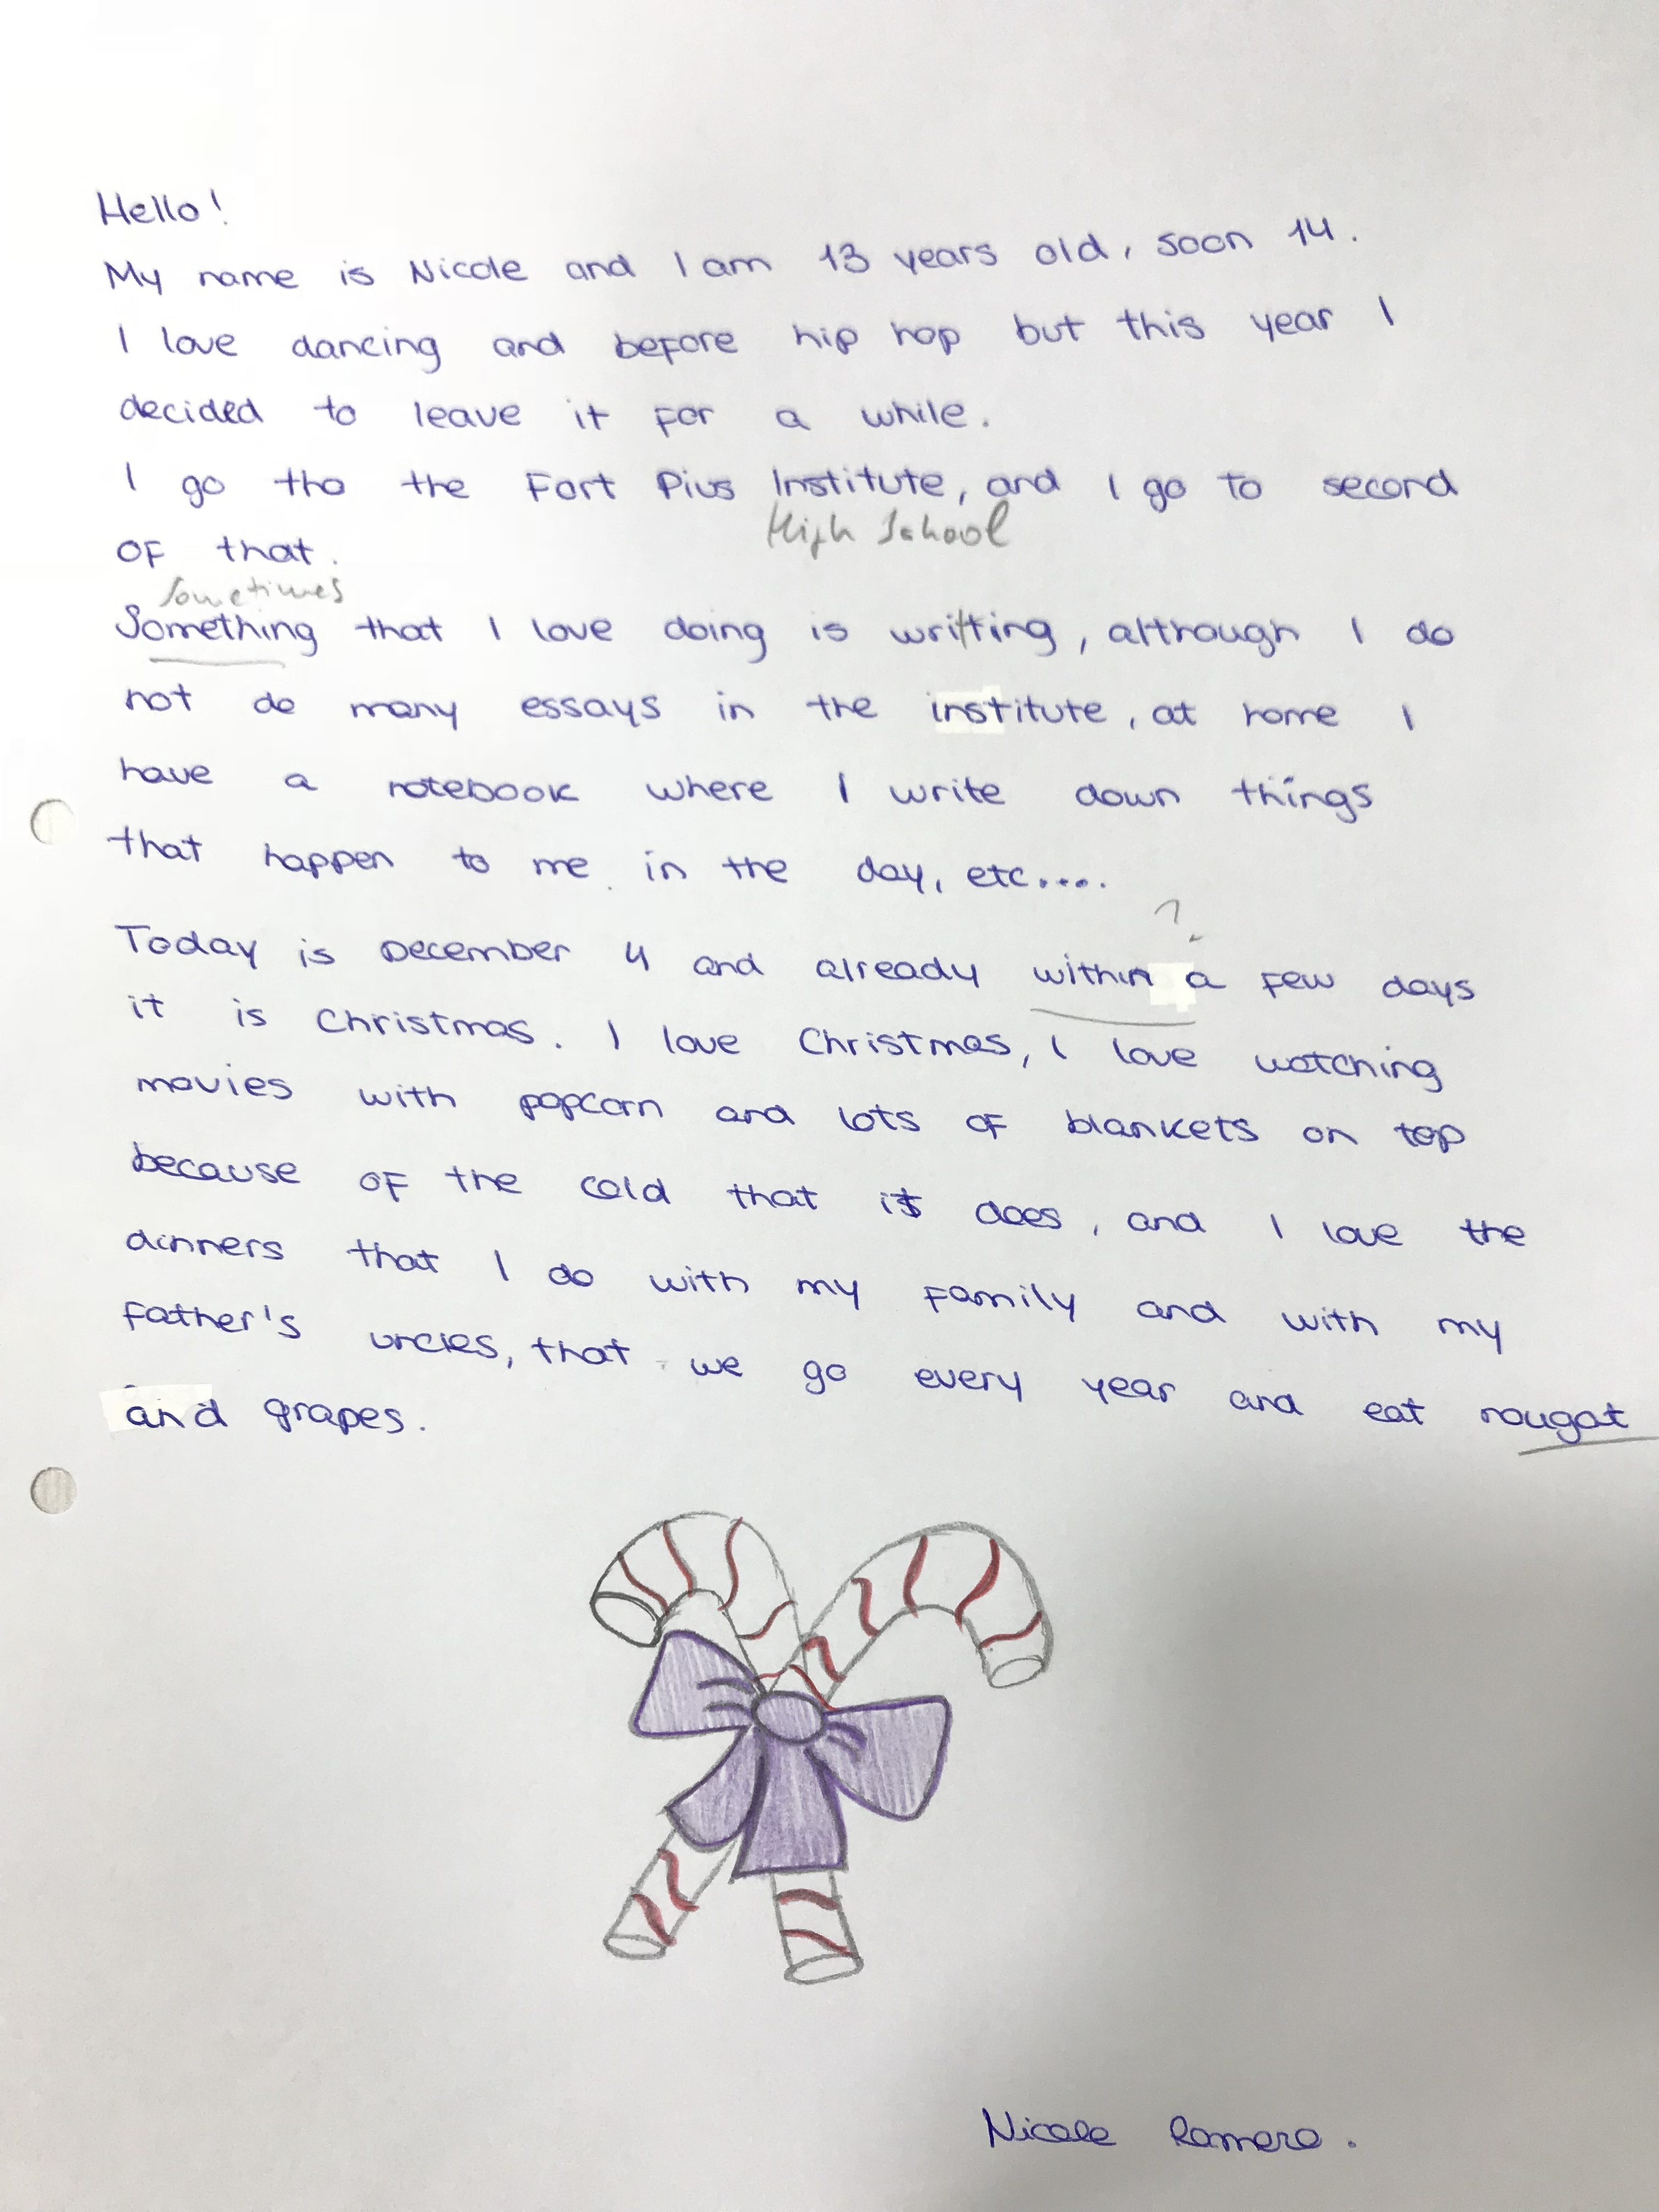 Hello!
My name is Nicole and I am 13 years old, soon 14.
I love dancing and before hip hop but this year I
decided to leave it for a while.
I go tho the Fort Pius Institute, and I go to second
High School
of that.
Sometimes
Something that I love doing is writting, although I do
not do many essays in the institute, at home I
have a notebook where I write down things
that happen to me in the day, etc....
?
Today is December 4 and already within a few days
it is Christmas. I love Christmas, I love watching
movies with popcorn and lots of blankets on top
because of the cold that it does, and I love the
dinners that I do with my family and with my
father's uncles, that we go every year and eat nougat
and grapes.
Nicole Romero.